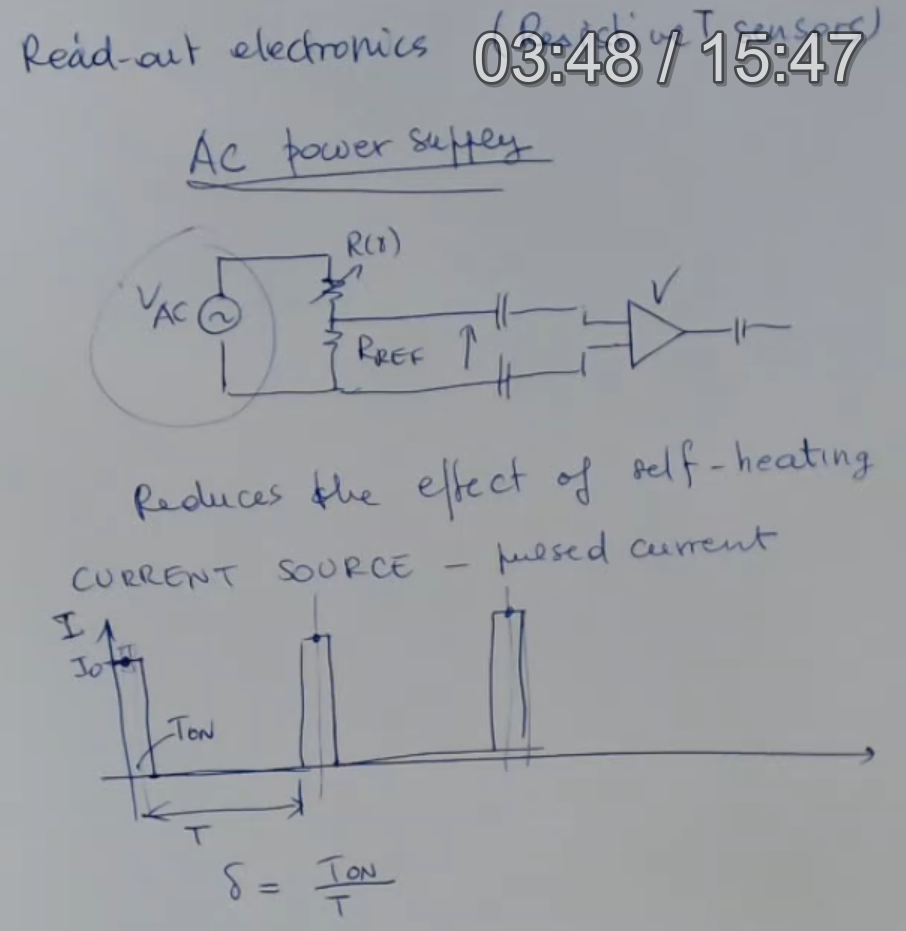 Read-out electronics (Resistive T sensors)
03:48 / 15:47
AC power supply
R(T)
VAC
~
RREF
V
Reduces the effect of self-heating
CURRENT SOURCE - pulsed current
I
Io
TON
T
δ = TON
T